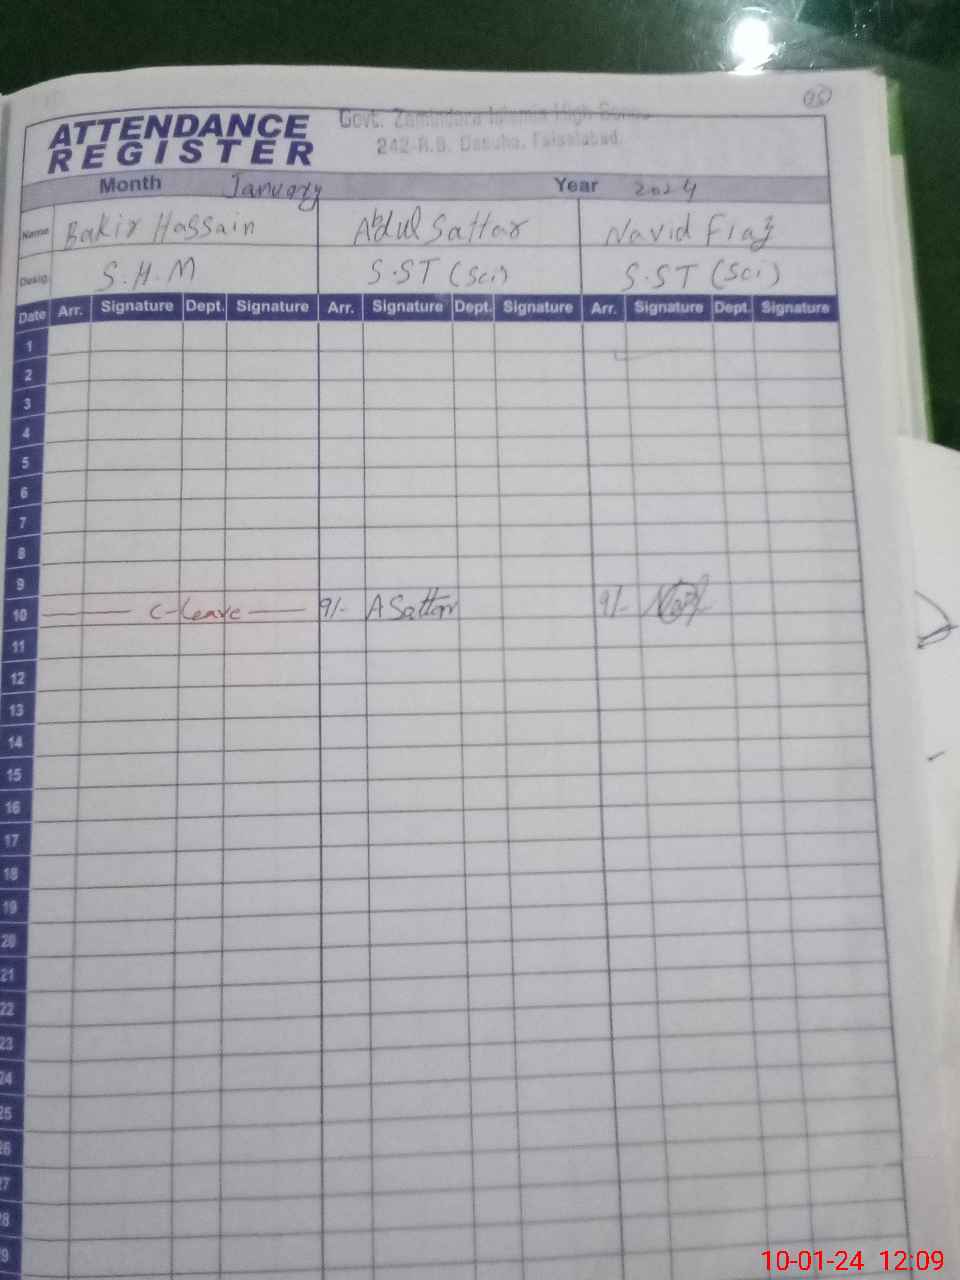 05
ATTENDANCE
REGISTER
Govt. Zamindara Islamia High
242-R.B. Dasuha, Faisalabad.
Month January Year 2024
Name Bakir Hassain Abdul Sattar Navid Fiaz
Desig. S.H.M S.ST (Sci) S.ST (Sci)
Date Arr. Signature Dept. Signature Arr. Signature Dept. Signature Arr. Signature Dept. Signature
1
2
3
4
5
6
7
8
9
10 C-Leave 9/- A Sattar 9/-
11
12
13
14
15
16
17
18
19
20
21
22
23
24
25
26
27
28
29
10-01-24 12:09